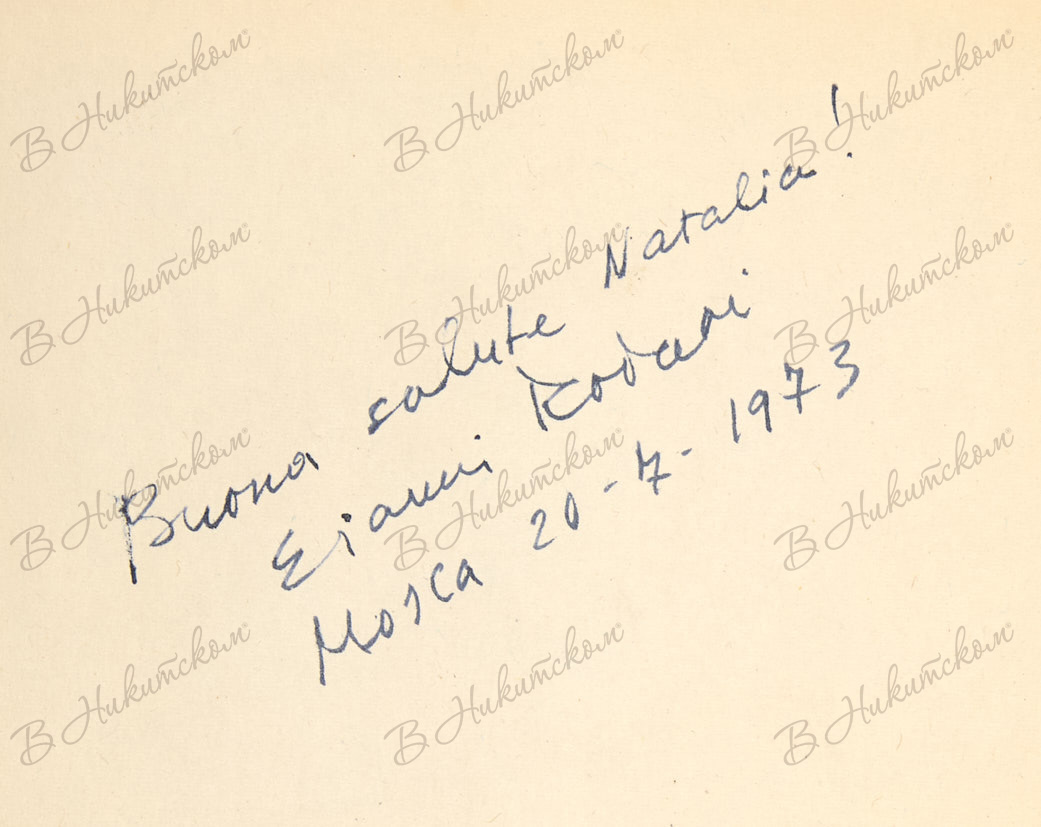 Buona salute Natalia!
Gianni Rodari
Mosca 20-7-1973
В Никитском
В Никитском
В Никитском
В Никитском
В Никитском
В Никитском
В Никитском
В Никитском
В Никитском
В Никитском
В Никитском
В Никитском